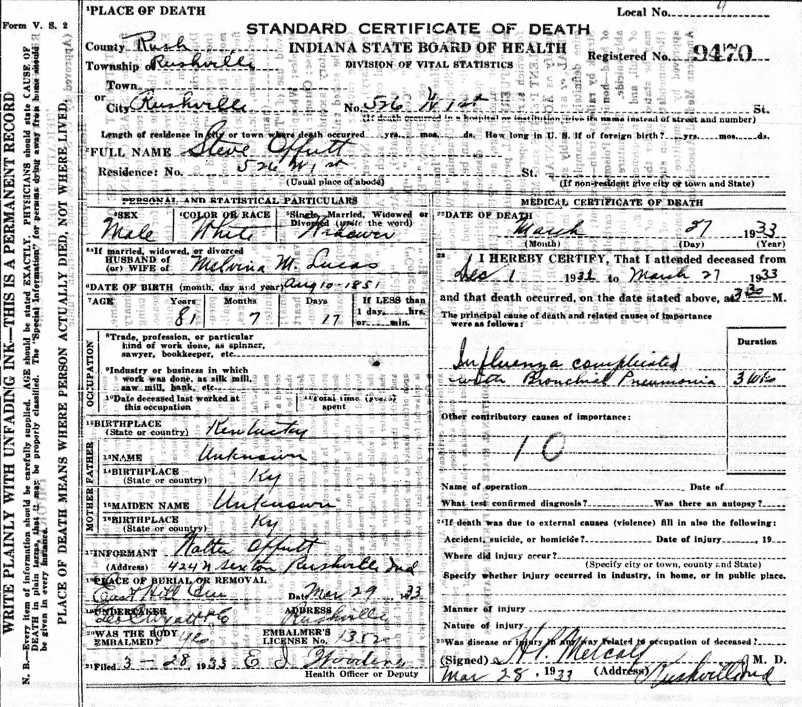 Form V. S. 2
WRITE PLAINLY WITH UNFADING INK—THIS IS A PERMANENT RECORD
N. B.—Every item of information should be carefully supplied. AGE should be stated EXACTLY. PHYSICIANS should state CAUSE OF
DEATH in plain terms, that it may be properly classified. The "Special Information" for persons dying away from home should
be given in every instance.
PLACE OF DEATH MEANS WHERE PERSON ACTUALLY DIED, NOT WHERE LIVED,
1PLACE OF DEATH
Local No.
STANDARD CERTIFICATE OF DEATH
County Rush
INDIANA STATE BOARD OF HEALTH
Registered No. 9470
Township Rushville
DIVISION OF VITAL STATISTICS
Town
or
City Rushville No. 526 W 1st St.
(If death occurred in a hospital or institution, give its name instead of street and number)
Length of residence in city or town where death occurred yrs. mos. ds. How long in U. S. if of foreign birth? yrs. mos. ds.
2FULL NAME Steve Offutt
Residence: No. 526 W 1st St.
(Usual place of abode) (If non-resident give city or town and State)
PERSONAL AND STATISTICAL PARTICULARS
3SEX 4COLOR OR RACE 5Single, Married, Widowed or
Divorced (write the word)
Male White Widower
5a If married, widowed, or divorced
HUSBAND OF
(or) WIFE of Melvina M. Lucas
6DATE OF BIRTH (month, day and year) Aug 10-1851
7AGE Years Months Days If LESS than
1 day, hrs.
or min.
81 7 17
OCCUPATION
8Trade, profession, or particular
kind of work done, as spinner,
sawyer, bookkeeper, etc.
9Industry or business in which
work was done, as silk mill,
saw mill, bank, etc.
10Date deceased last worked at
this occupation
11Total time (years)
spent
12BIRTHPLACE
(State or country) Kentucky
FATHER
13NAME Unknown
14BIRTHPLACE
(State or country) Ky
MOTHER
15MAIDEN NAME Unknown
16BIRTHPLACE
(State or country) Ky
17INFORMANT Offutt
(Address) 424 N Sexton Rushville Ind
18PLACE OF BURIAL OR REMOVAL
East Hill Cem Date Mar 29, 1933
19UNDERTAKER ADDRESS
Wyatt Rushville
20WAS THE BODY
EMBALMED? Yes
EMBALMER'S
LICENSE No.
21Filed 3-28, 1933
Health Officer or Deputy
MEDICAL CERTIFICATE OF DEATH
22DATE OF DEATH
March 27 1933
(Month) (Day) (Year)
23 I HEREBY CERTIFY, That I attended deceased from
Dec 1 1932 to March 27 1933
and that death occurred, on the date stated above, at 3:30 M.
The principal cause of death and related causes of importance
were as follows:
Duration
Influenza complicated
with Bronchial Pneumonia 3 wks
Other contributory causes of importance:
10
Name of operation Date of
What test confirmed diagnosis? Was there an autopsy?
24If death was due to external causes (violence) fill in also the following:
Accident, suicide, or homicide? Date of injury , 19
Where did injury occur?
(Specify city or town, county and State)
Specify whether injury occurred in industry, in home, or in public place.
Manner of injury
Nature of injury
25Was disease or injury in any way related to occupation of deceased?
(Signed) Metcalf M. D.
Mar 28, 1933 (Address) Rushville Ind